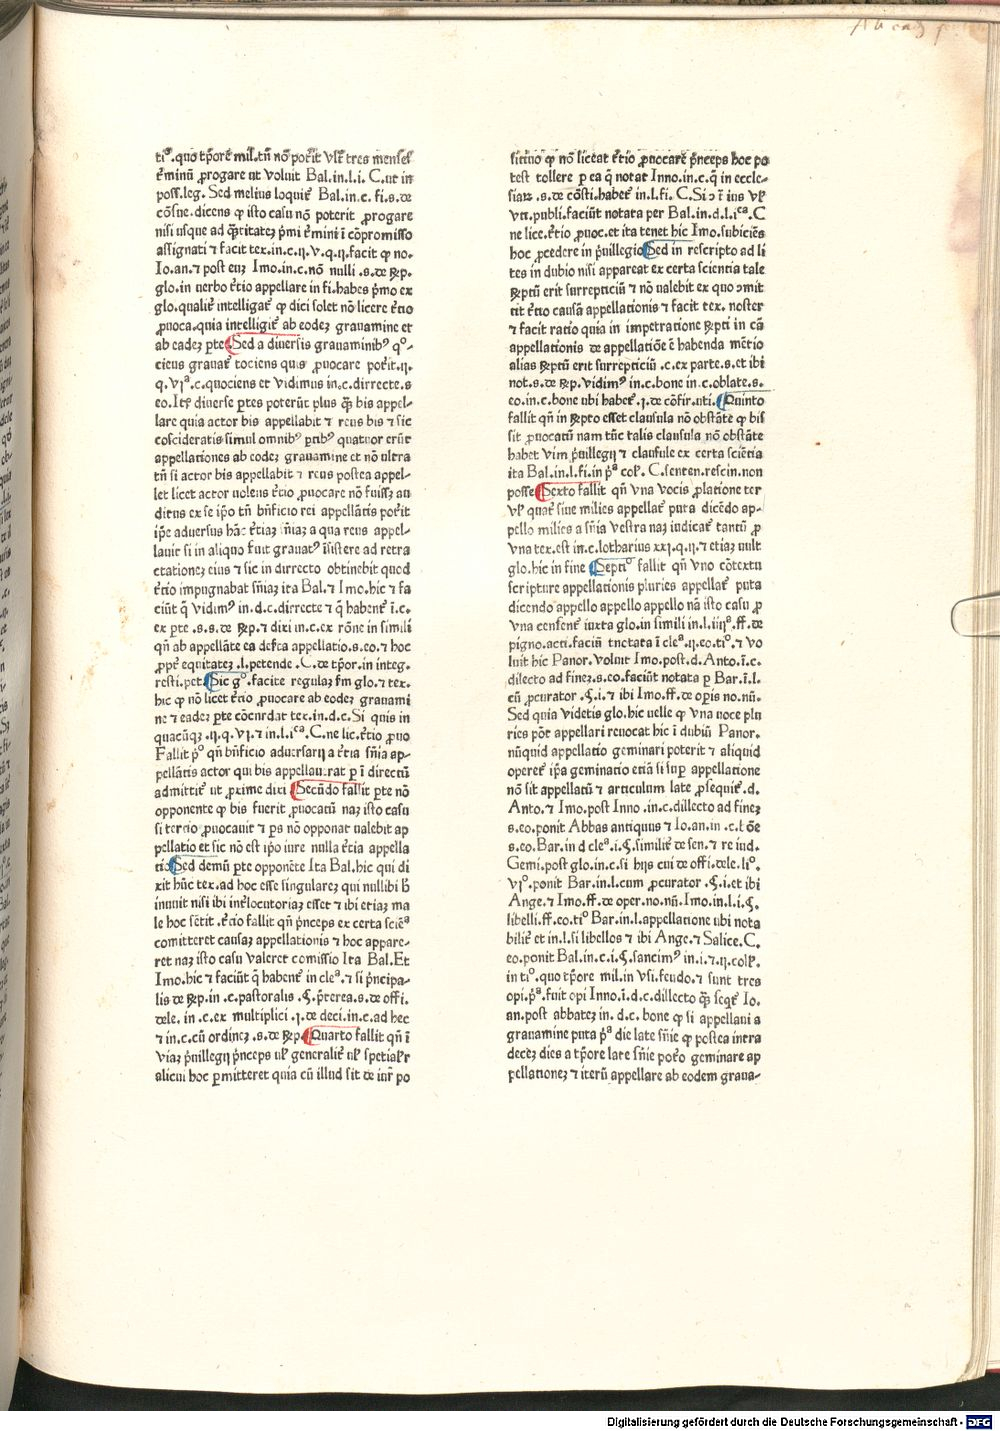 tiº.quo tp̄orē mil.tn̄ nō pot̄it vlt̄ tres menses
t̄minū ꝓrogare ut voluit Bal.in.l.i. C.ut in
poss.leg. Sed melius loquit̄ Bal.in.c. fi.s.de
cōsue.dicens ꝙ isto casu nō poterit ꝓrogare
nisi usque ad q̄titateꝫ p̄mi t̄mini ī cōpromisso
assignati ⁊ facit tex.in.c.ij. v.q.ij.facit ꝙ no.
Io.an.⁊ post euꝫ Imo.in.c.nō nulli .s.de r̄p.
glo.in uerbo t̄tio appellare in fi.habes p̄mo ex
glo.qualit̄ intelligat̄ ꝙ dici solet nō licere t̄tio
ꝓuoca.quia intelligit̄ ab eodeꝫ grauamine et
ab eadeꝫ ꝑte. Sed a diuersis grauaminibꝰ qº-
ciens grauat̄ tociens quis ꝓuocare pot̄it.ij.
q.vjª.c.quociens et vidimus in.c.dirrecte.s
eo.Itꝫ diuerse ꝑtes poterūt plus q̄ bis appel-
lare quia actor bis appellabit ⁊ reus bis ⁊ sic
cōsideratis simul omnibꝰ ꝑtibꝰ quatuor erūt
appellationes ab eodeꝫ grauamine et nō ultra
tn̄ si actor bis appellabit ⁊ reus postea appel-
let licet actor uolens t̄tio ꝓuocare nō fuisꝫ au
ditus ex se ip̄o tn̄ bn̄ficio rei appellātis pot̄it
ip̄e aduersus hāc t̄tiaꝫ sn̄iaꝫ a qua reus appel-
lauit si in aliquo fuit grauatꝰ īsistere ad retra
ctationeꝫ eius ⁊ sic in dirrecto obtinebit quod
t̄tio impugnabat sn̄iaꝫ ita Bal.⁊ Imo.hic ⁊ fa
ciūt q̄ vidimꝰ in.d.c.dirrecte ⁊ q̄ habent̄ ī.c.
ex ꝑte .s.s.de r̄p.⁊ dixi in.c.ex rōne in simili
qn̄ ab appellāte ea defca appellatio.s.eo.⁊ hoc
ꝓpt̄ equitateꝫ .l.petende .C.de tp̄or.in integ.
resti.pet. Sic gº.facite regulaꝫ fm glo.⁊ tex.
hic ꝙ nō licet t̄tio ꝓuocare ab eodeꝫ grauami
ne ⁊ eadeꝫ ꝑte cōcordat tex.in.d.c.Si quis in
quacūqꝫ .ij.q.vj.⁊ in.l.iᶜᵃ.C.ne lic.t̄tio ꝓuo
Fallit pº qn̄ bn̄ficio aduersarij a t̄tia sn̄ia ap-
pellātis actor qui bis appellauerat ꝑ ī directū
admittit̄ ut ꝓxime dixi Secūdo fallit ꝑte nō
opponente ꝙ bis fuerit ꝓuocatū naꝫ isto casu
si tercio ꝓuocauit ⁊ ꝑs nō opponat ualebit ap
pellatio et sic nō est ip̄o iure nulla t̄tia appella
tio Sed demū ꝑte opponēte Ita Bal.hic qui di
xit hūc tex.ad hoc esse singulareꝫ qui nullibi b̄
inuuit nisi ibi int̄locutoriaꝫ esset ⁊ ibi etiaꝫ ma
le hoc sētit .t̄tio fallit qn̄ p̄nceps ex certa sciēª
comitteret causaꝫ appellationis ⁊ hoc appare-
ret naꝫ isto casu valeret comissio Ita Bal.Et
Imo.hic ⁊ faciūt q̄ habent̄ in cleª.⁊ si p̄ncipa-
lis de r̄p.in .c.pastoralis .§.p̄terea.s.de offi.
dele. in .c.ex multiplici .j.de deci.in.c.ad hec
⁊ in.c.cū ordineꝫ .s.de r̄p. Quarto fallit qn̄ ī
viaꝫ p̄uilegij p̄nceps ul̄ generalit̄ ul̄ spetialr̄
alicui hoc ꝑmitteret quia cū illud sit de iur̄ po
sitiuo ꝙ nō liceat t̄tio ꝓuocare p̄nceps hoc po
test tollere ꝑ ea q̄ notat Inno.in.c.q̄ in eccle-
siarꝫ .s.de cōsti.habet̄ in.l.fi. C.Si ɔ̄ ī ius vl̄
vti.publi.faciūt notata per Bal.in.d.l.iᶜᵃ.C
ne lice.t̄tio ꝓuoc.et ita tenet hic Imo.subiciēs
hoc ꝓcedere in p̄uilegio Sed in rescripto ad li
tes in dubio nisi appareat ex certa scientia tale
r̄ptū erit surrepticiū ⁊ nō ualebit ex quo ɔmit
tit t̄tio causā appellationis ⁊ facit tex. noster
⁊ facit ratio quia in impetratione r̄pti in cā
appellationis de appellatiōe ē habenda mētio
alias r̄ptū erit surrepticiū .c.ex parte.s.et ibi
not.s.de r̄p.vidimꝰ in.c.bone in.c.oblate.s.
eo.in.c.bone ubi habet̄ .j.de cōfir.uti. Quinto
fallit qn̄ in r̄pto esset clausula nō obstāte ꝙ bis
sit ꝓuocatū nam tūc talis clausula nō obstāte
habet vim p̄uilegij ⁊ clausule ex certa sciētia
ita Bal.in.l.fi.in pª col. C.senten.rescin.non
posse Sexto fallit qn̄ vna vocis ꝓlatione ter
vl̄ quat̄ siue milies appellat̄ puta dicēdo ap-
pello milies a sn̄ia vestra naꝫ iudicat̄ tantū ꝓ
vna tex.est in.c.lotharius xxj.q.ij.⁊ etiaꝫ uult
glo.hic in fine Septiº fallit qn̄ vno cōtextu
scripture appellationis pluries appellat̄ puta
dicendo appello appello appello nā isto casu ꝓ
vna censent̄ iuxta glo.in simili in.l.iiijª.ff.de
pigno.acti.faciū tnotata ī cleª.ij.eo.tiº.⁊ vo
luit hic Panor.voluit Imo.post.d.Anto.ī.c.
dilecto ad fineꝫ.s.eo.faciūt notata ꝑ Bar.ī.l.
cū ꝓcurator .§.i.⁊ ibi Imo.ff.de oꝑis no.nū.
Sed quia videtis glo.hic uelle ꝙ vna uoce plu
ries pōt appellari reuocat hic ī dubiū Panor.
nūquid appellatio geminari poterit ⁊ aliquid
operet̄ ip̄a geminatio etiā si suꝑ appellatione
nō sit appellatū ⁊ articulum late ꝓsequit̄.d.
Anto.⁊ Imo.post Inno .in.c.dillecto ad fineꝫ
s.eo.ponit Abbas antiquus ⁊ Io.an.in .c.I ōe
s.eo.Bar.in d cleª.i.§.similit̄ de sen.⁊ re iud.
Gemi.post glo.in.c.si hijs cui de offi.dele.liº.
vjº.ponit Bar.in.l.cum ꝓcurator .§.i.et ibi
Ange.⁊ Imo.ff.de oper.no.nū.Imo.in.l.i.§.
libelli.ff.eo.tiº Bar.in.l.appellatione ubi nota
bilit̄ et in.l.si libellos ⁊ ibi Ange.⁊ Salice.C.
eo.ponit Bal.in.c.i.§.sancimꝰ in.i.⁊.ij.col.
in tiº.quo tp̄ore mil.in vsi.feudo.⁊ sunt tres
opi.pª.fuit opi Inno.ī.d.c.dillecto q̄ seqt̄ Io.
an.post abbateꝫ in.d.c. bone ꝙ si appellaui a
grauamine puta pª die late sn̄ie ꝙ postea infra
deceꝫ dies a tp̄ore lare sn̄ie pot̄o geminare ap
pellationeꝫ ⁊ iterū appellare ab eodem graua-
Digitalisierung gefördert durch die Deutsche Forschungsgemeinschaft - DFG